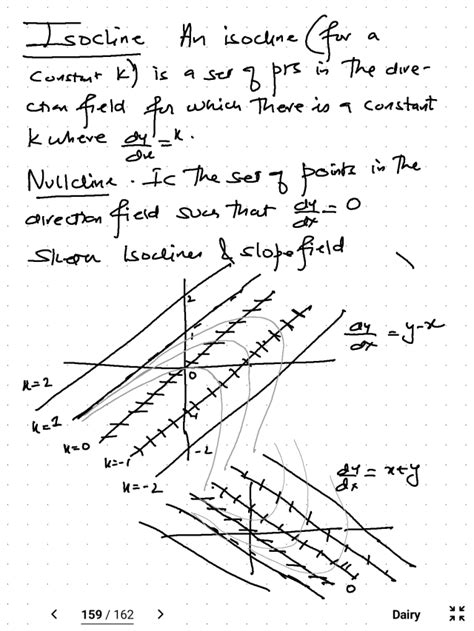 Isocline An isocline (for a
constant k) is a set of pts in the dire-
ction field for which there is a constant
k where dy/dx = k.
Nullcline. Is the set of points in the
direction field such that dy/dx = 0
Sketch Isoclines & slopefield
2
1
dy/dx = y-x
0
k=2
k=1
-1
k=0
k=-1
-2
k=-2
dy/dx = x+y
0
< 159 / 162 >
Dairy